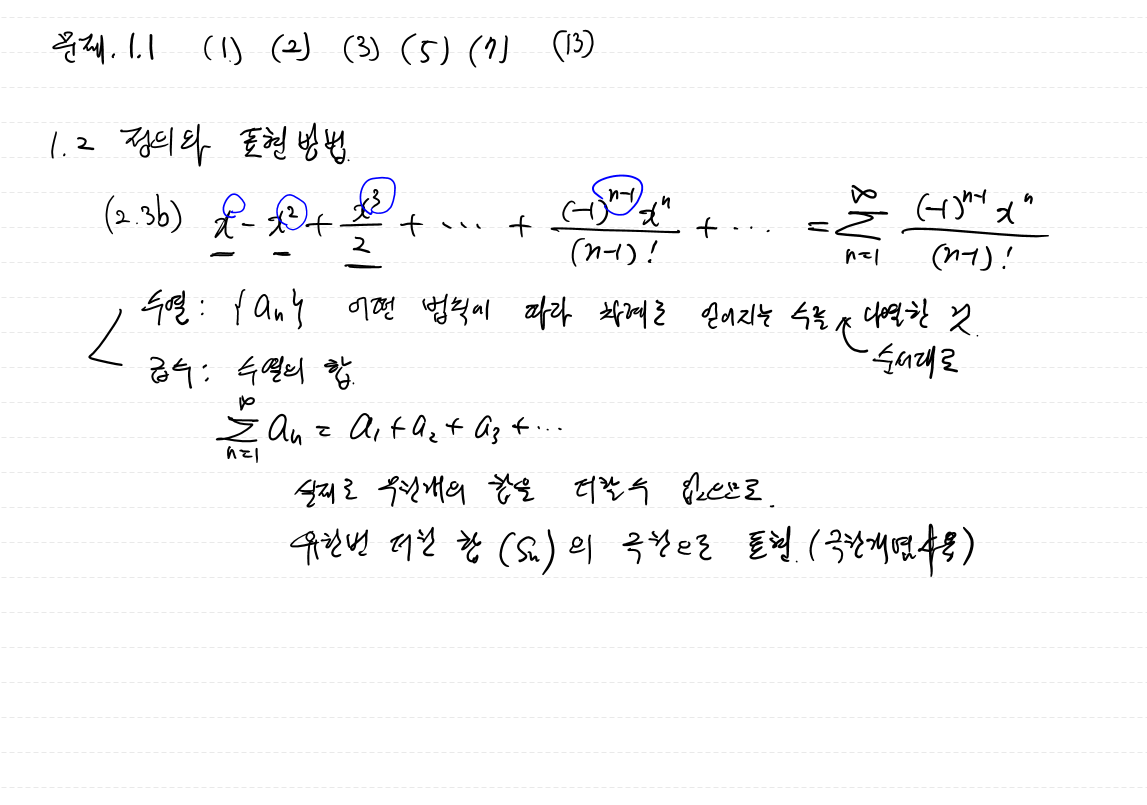 문제. 1.1 (1) (2) (3) (5) (7) (13)
1.2 정의와 표현방법.
(2.3b) x - x² + x³/2 + ··· + (-1)ⁿ⁻¹ xⁿ/(n-1)! + ··· = ∑_{n=1}^{∞} (-1)ⁿ⁻¹ xⁿ/(n-1)!
수열 : {aₙ} 어떤 법칙에 따라 차례로 얻어지는 수를 나열한 것.
순서대로
급수 : 수열의 합.
∑_{n=1}^{∞} aₙ = a₁ + a₂ + a₃ + ···
실제로 무한개의 합을 더할 수 없으므로.
유한번 더한 합 (Sₙ) 의 극한으로 표현. (극한개념 사용)